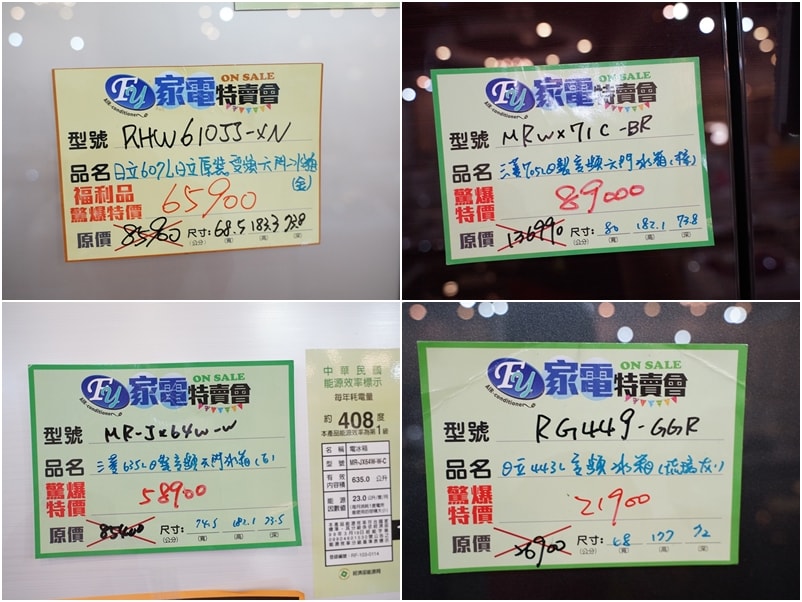 FY 家電特賣會 ON SALE
Air-conditioner
型號 RHW610JJ-XN
品名 日立607L日立原裝變頻六門冰箱(金)
福利品
驚爆特價 65900
原價 85900 尺寸: 68.5 183.3 73.8
(公分) (寬) (高) (深)
FY 家電特賣會 ON SALE
Air-conditioner
型號 MRWX71C-BR
品名 三菱705L日製變頻六門冰箱(棕)
驚爆
特價 89000
原價 136990 尺寸: 80 182.1 73.8
(公分) (寬) (高) (深)
FY 家電特賣會 ON SALE
Air-conditioner
型號 MR-JX64W-W
品名 三菱635L日製變頻六門冰箱(白)
驚爆
特價 58900
原價 85400 尺寸: 74.5 182.1 73.5
(公分) (寬) (高) (深)
中華民國
能源效率標示
每年耗電量
約 408 度
本產品能源效率為第1級
名稱 電冰箱
型號 MR-JX64W-W-C
有效內容積 635.0 公升
能源因數值 23.0 公升/度/月
經濟部能源局
FY 家電特賣會 ON SALE
Air-conditioner
型號 RG449-GGR
品名 日立443L變頻冰箱(琉璃灰)
驚爆
特價 21900
原價 36900 尺寸: 68 177 72
(公分) (寬) (高) (深)